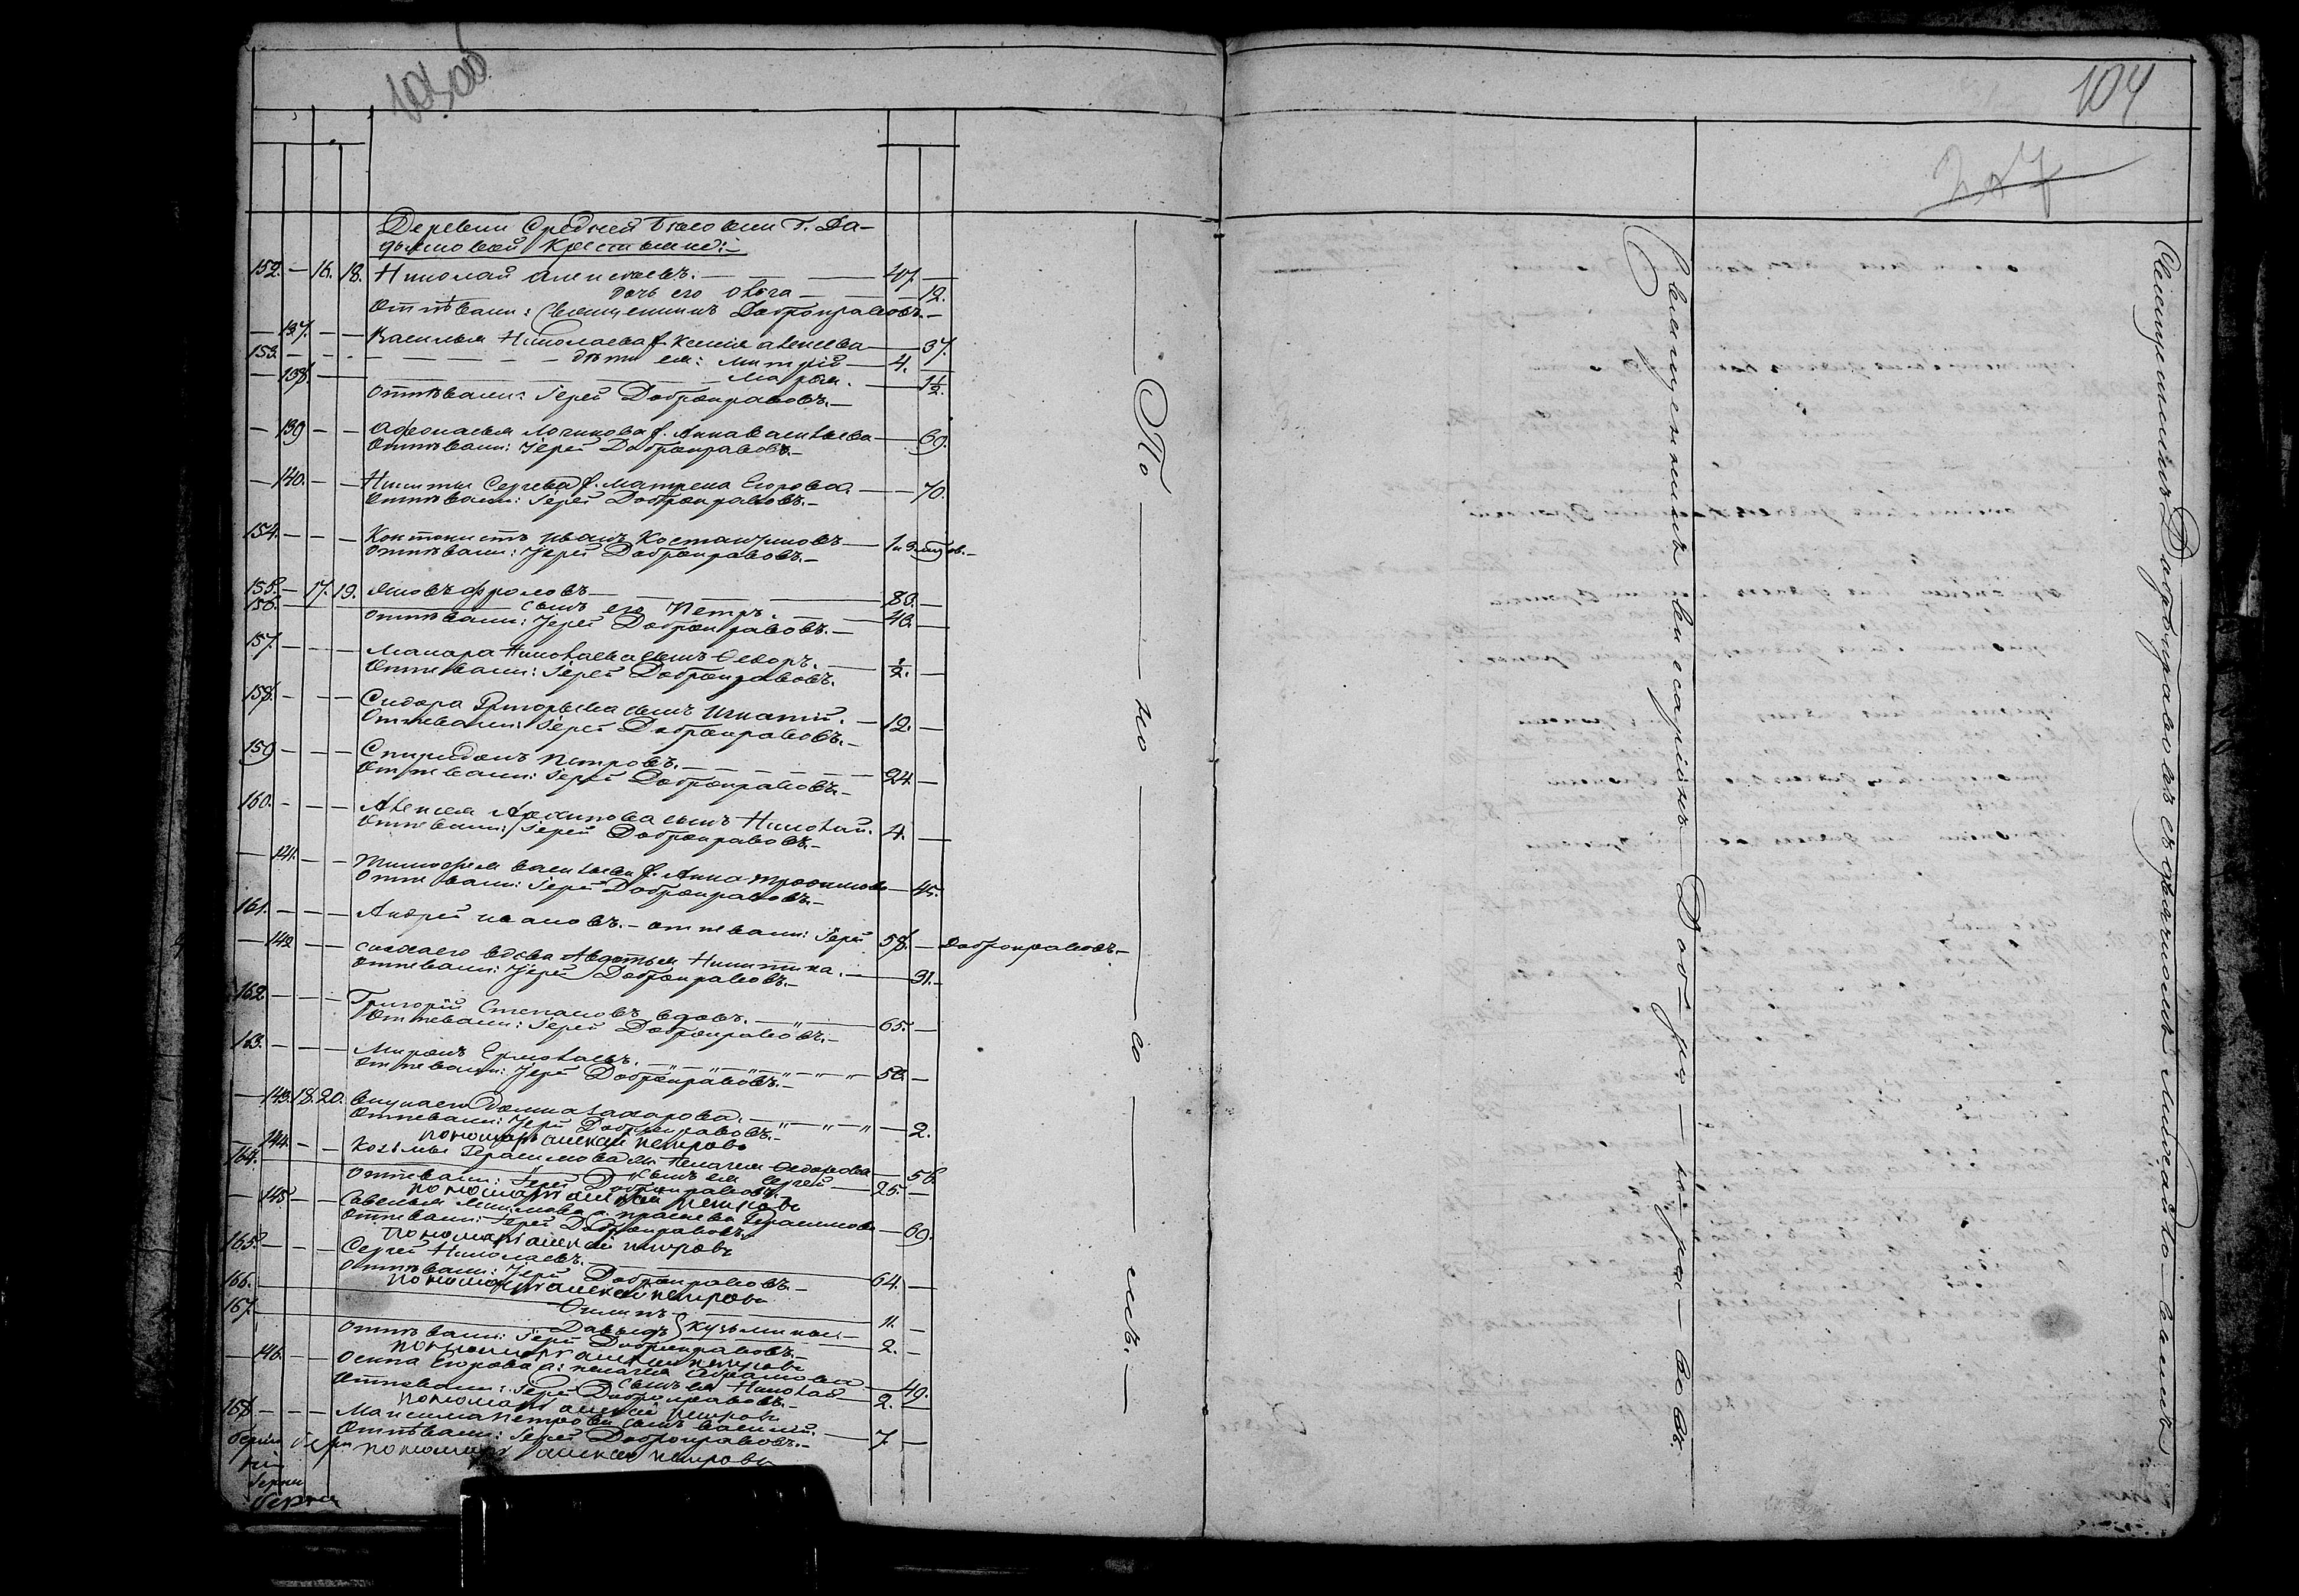 103об
104
Деревни Средней
крестьяне:
152. — 16. 18. Николай Алексеевъ. — 47. —
дочь его Ольга — 12.
Отпѣвали: Священникъ Добронравовъ. —
— 137. — — Василья Николаева ж. Ксенія Алексеева — 37.
153. — — — дѣти ея: Митрій — 4. —
— 138. — — Марѳа. — 1½.
Отпѣвали: Іерей Добронравовъ. —
— 139 — — Афонасья Логинова ж. Анна Васильева — 69.
Отпѣвали: Іерей Добронравовъ. —
— 140. — — Никиты Сергѣева ж. Матрена Егорова. — 70.
Отпѣвали: Іерей Добронравовъ. —
154. — — — Кантонистъ Иванъ Костантиновъ — 1
Отпѣвали: Іерей Добронравовъ. —
155. — 17. 19. Яковъ Фроловъ — 80. —
156. — сынъ его Петръ. — 40. —
Отпѣвали: Іерей Добронравовъ. —
157. — — — Макара Николаева сынъ Ѳедоръ. — ½. —
Отпевали: Іерей Добронравовъ.
158. — — — Сидора Григорьева сынъ Игнатій. — 12. —
Отпевали: Іерей Добронравовъ. —
159 — — — Спиридонъ Петровъ. — 24 —
Отпевали: Іерей Добронравовъ. —
160. — — — Алексея Архипова сынъ Николай. 4. —
Отпевали: Іерей Добронравовъ. —
— 141. — — Тимофея Васильева ж. Анна Трофимова — 45.
Отпевали: Іерей Добронравовъ. —
161. — — — Андрей Ивановъ. — отпевали: Іерей 58. — Добронравовъ. —
— 142 — — вдова Авдотья Никитина. — 31. —
Отпевали: Іерей Добронравовъ. —
162 — — — Григорій Степановъ вдовъ. — 65. —
Отпевали: Іерей Добронравовъ. —
163. — — — Миронъ Ермолаевъ. — 50. —
Отпевали: Іерей Добронравовъ. —
— 143. 18. 20. Домна Захарова. — 2.
Отпевали: Іерей Добронравовъ. —
пономарь алексей петровъ
— 144. — — Козьмы Герасимова Пелагея Ѳедорова — 56
164. — сынъ ея Сергей — 25. —
Отпевали: Іерей Добронравовъ.
пономарь алексей петровъ
— 145. — — Савелья прасковья Герасимова — 69.
Отпевали: Іерей Добронравовъ.
пономарь алексей петровъ
165. — — — Сергей Николаевъ. — 64. —
Отпевали: Іерей Добронравовъ. —
пономарь алексей петровъ
166. — Филипъ 11. —
167. — Давыдъ } Кузьмины — 2. —
Отпевали: Іерей Добронравовъ. —
пономарь алексей петровъ
— 146. — — Осипа Егорова пелагея — 49.
сынъ ея Николай 2. —
Отпевали: Іерей Добронравовъ. —
пономарь алексей петровъ
168 — — — Максима Петрова сынъ Василий. — 7 —
Отпѣвали: Іерей Добронравовъ. —
пономарь алексей петровъ
— По — но — со — мъ. —
Священникъ Виссаріонъ — Доб — ро — н — ра — вовъ.
Священникъ Добонравовъ съ дьячкомъ Михайло — вымъ